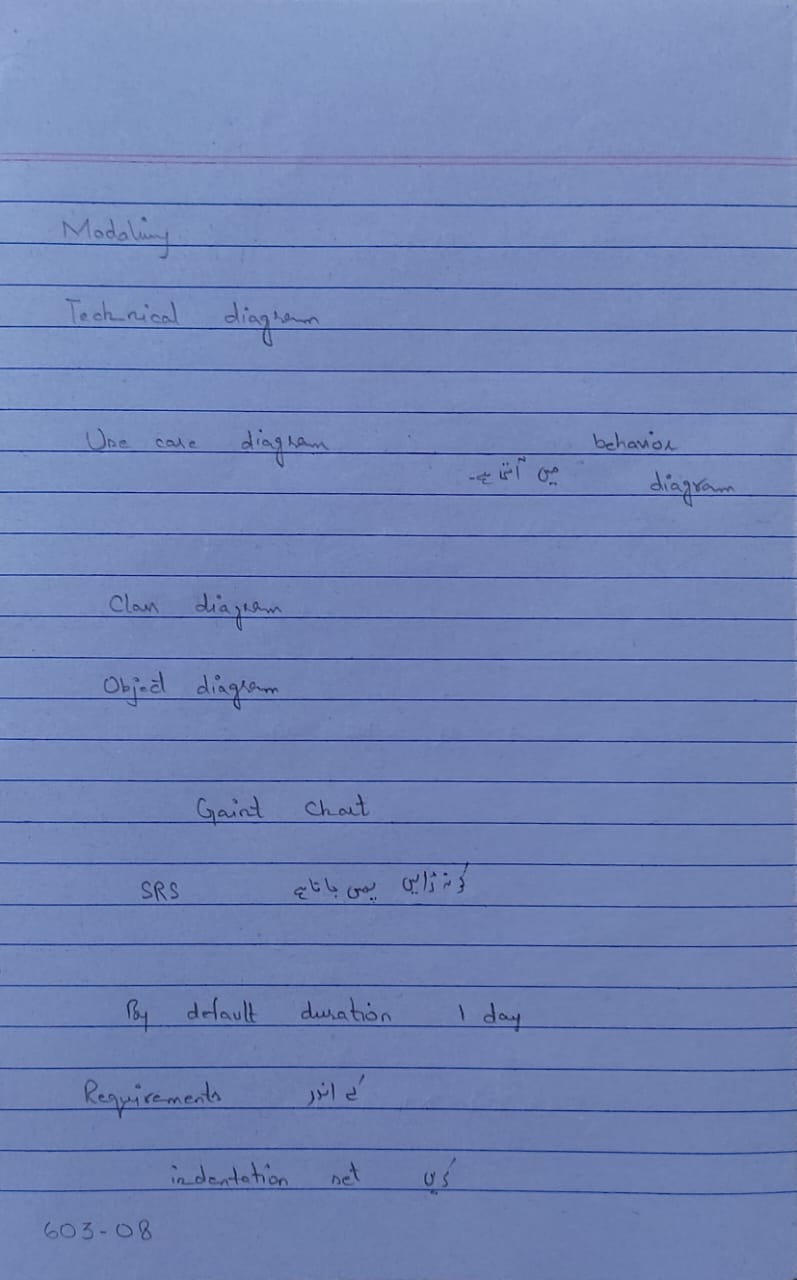 Modaling
Technical diagram
Use case diagram behavior
diagram میں آتی ہے۔
Class diagram
Object diagram
Gaint Chart
SRS میں جاتا ہے
By default duration 1 day
Requirements کے اندر
indentation set کریں
603-08